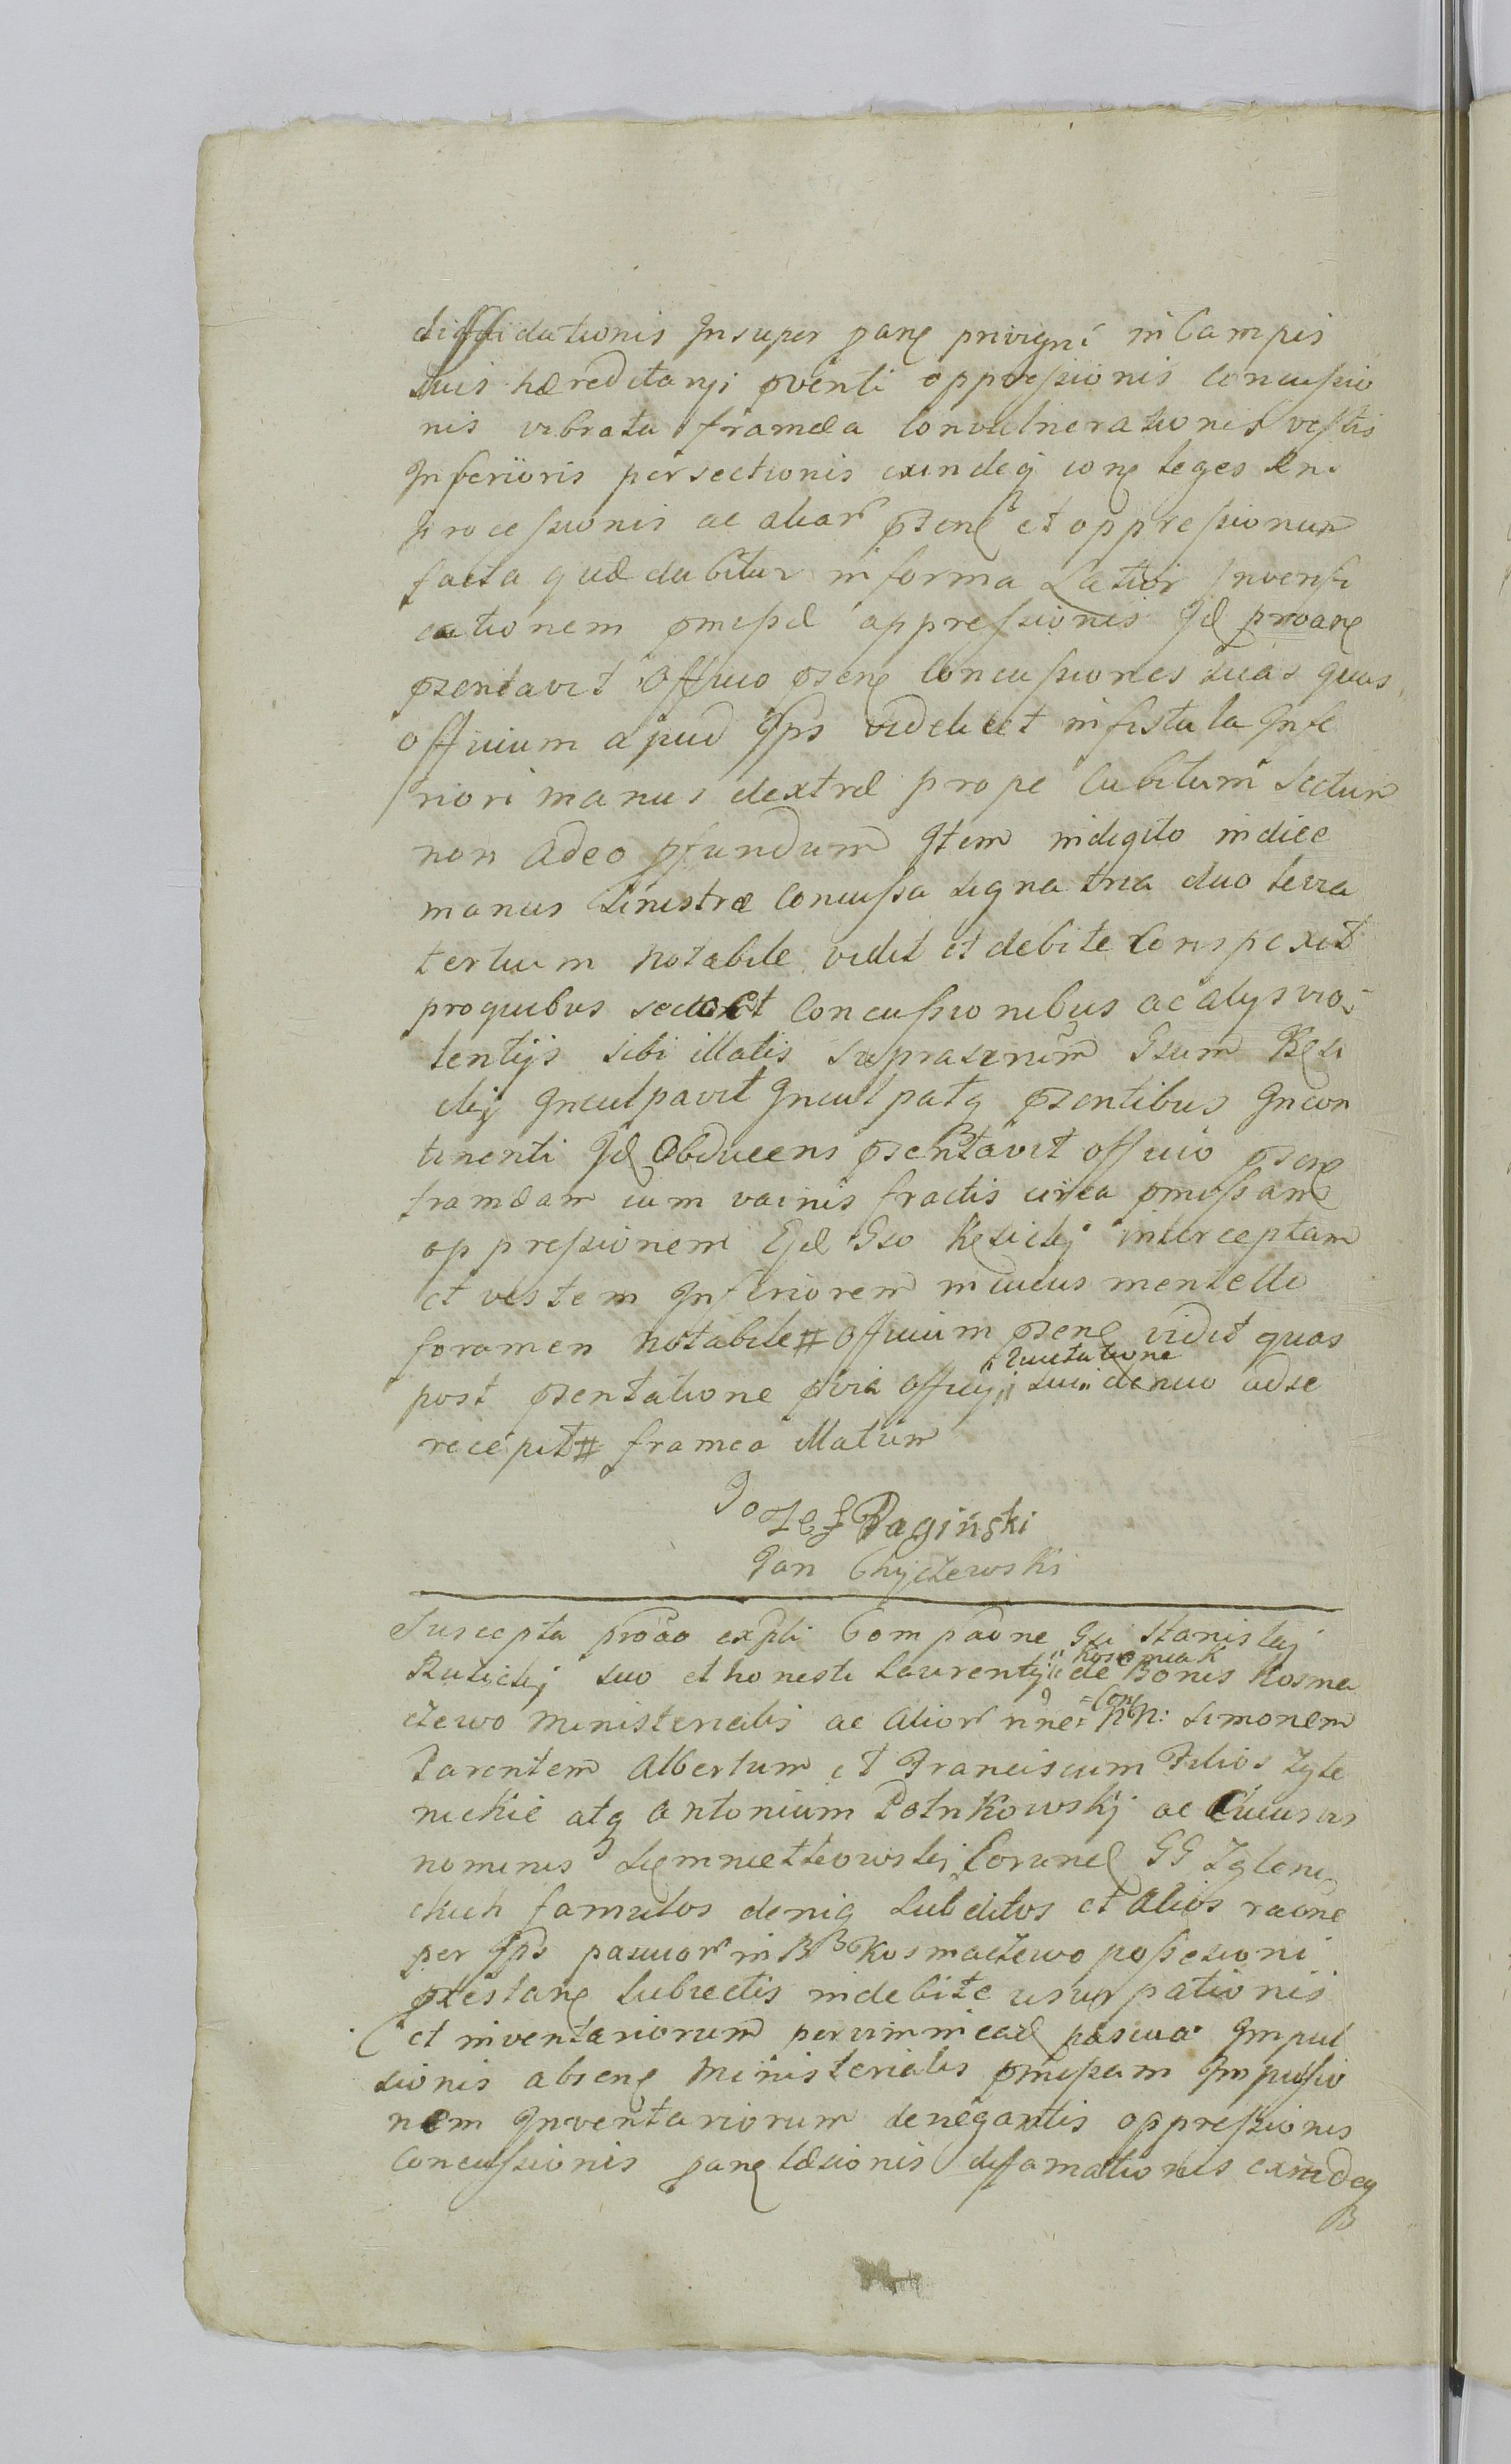 diffidationis Insuper pang privigni in Campis
suis hæreditarys pventi oppressionis Concussio
nis vibrata framea Convulnerationis vestis
Inferioris persectionis exindeq cong leges Ani
processionis ac aliar pseng et oppressionum
facta quæ dabitur in forma Latior Inverifi
cationem pmissæ oppressionis Id proang
psentavit Officio pseng Concussiones suas quas
Officium apud Ips videlicet in fistula Infe
riori manus dextræ prope Cubitum sectum
non adeo pfundum Item in digito indice
manus sinistræ Concussa signa tria duo levia
tertium notabile vidit et debite Conspexit
pro quibus Concussionibus ac alys vio
lentijs sibi illatis supra Gsum Kęsi
ckij Inculpavit Inculpatq psentibus Incon
tinenti Id Obducens psentavit officio pseng
frameam cum vainis fractis circa pmissam
oppressionem Gso Kęsickij interceptam
et vestem Inferiorem in cuius mentelle
foramen notabile # Officium pseng vidit quas
post psentatione pvia Officij „Quietatione„ sui denuo ad se
recepit # framea illatum
Jozef Paginski
Jan Chyczewski
Suscepta proao expli Compaone Gsi Stanislaj
Rusickij suo et honesti Laurentij „Kosmiak„ de Bonis Kosma
czewo Ministerialis ac alior nne: Con NN: Simonem
Parentem Albertum et Franciscum Filios Zyle
nickie atq Antonium Potrkowskj ac Cuiusvis
nominis GG Zyleni
ckich famulos deniq subditos et alios raone
per Ips pascuor in BB Kosmaczewo possesioni
pxistang subiectis indebite usurpationis
et inventariorum per vim in ead pascua Impul
sionis abseng Ministerialis pmissam Impulsio
nem Inventariorum denegantis oppressionis
Concussionis pang læsionis diffamationis exindeq